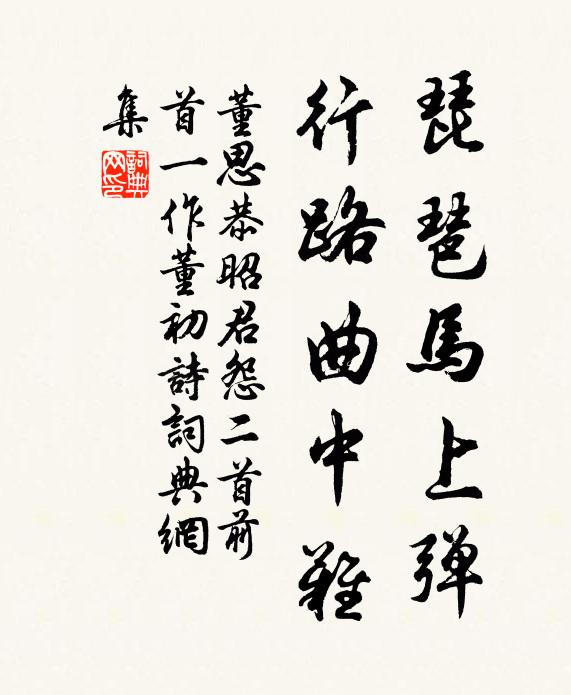 琵琶馬上彈
行路曲中難
董思恭昭君怨二首前
首一作董初詩詞典網
集
詞典
网印